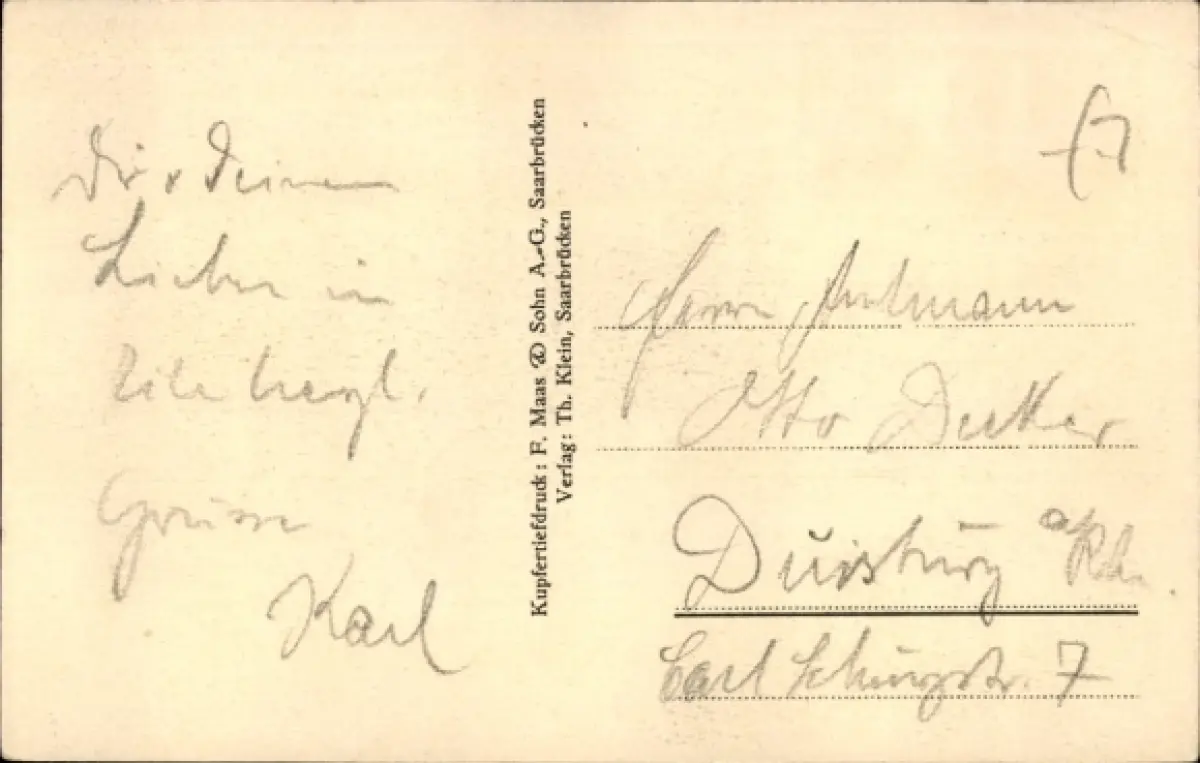 Dir & Deinen
Lieben in
Eile herzl.
Grüsse
Karl
Kupfertiefdruck: F. Maas & Sohn A.-G., Saarbrücken
Verlag: Th. Klein, Saarbrücken
Herrn
Otto Decker
Duisburg a/Rh.
Carl Schurzstr. 7